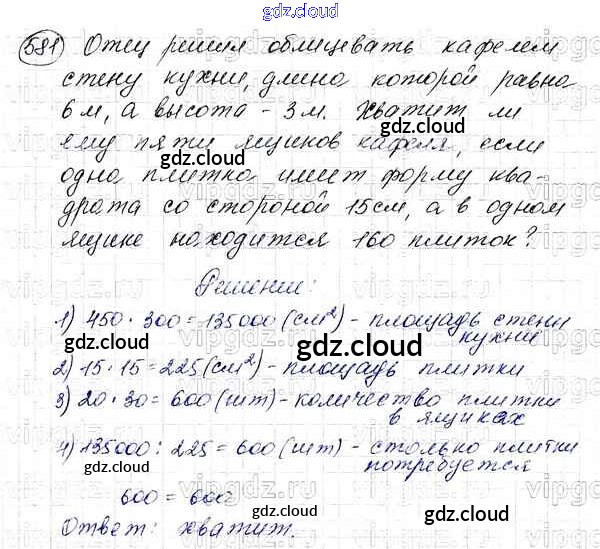 gdz.cloud
581) Отец решил облицевать кафелем
стену кухни, длина которой равна
6 м, а высота - 3 м. Хватит ли
ему пяти ящиков кафеля, если
одна плитка имеет форму ква-
драта со стороной 15 см, а в одном
ящике находится 160 плиток?
Решение:
1) 450 · 300 = 135000 (см²) - площадь стены
кухни
2) 15 · 15 = 225 (см²) - площадь плитки
3) 20 · 30 = 600 (шт) - количество плитки
в ящиках
4) 135000 : 225 = 600 (шт) - столько плитки
потребуется
600 = 600
Ответ: хватит.
gdz.cloud